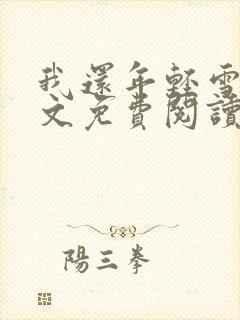 我還年輕雪
文免費閱讀
陽三拳